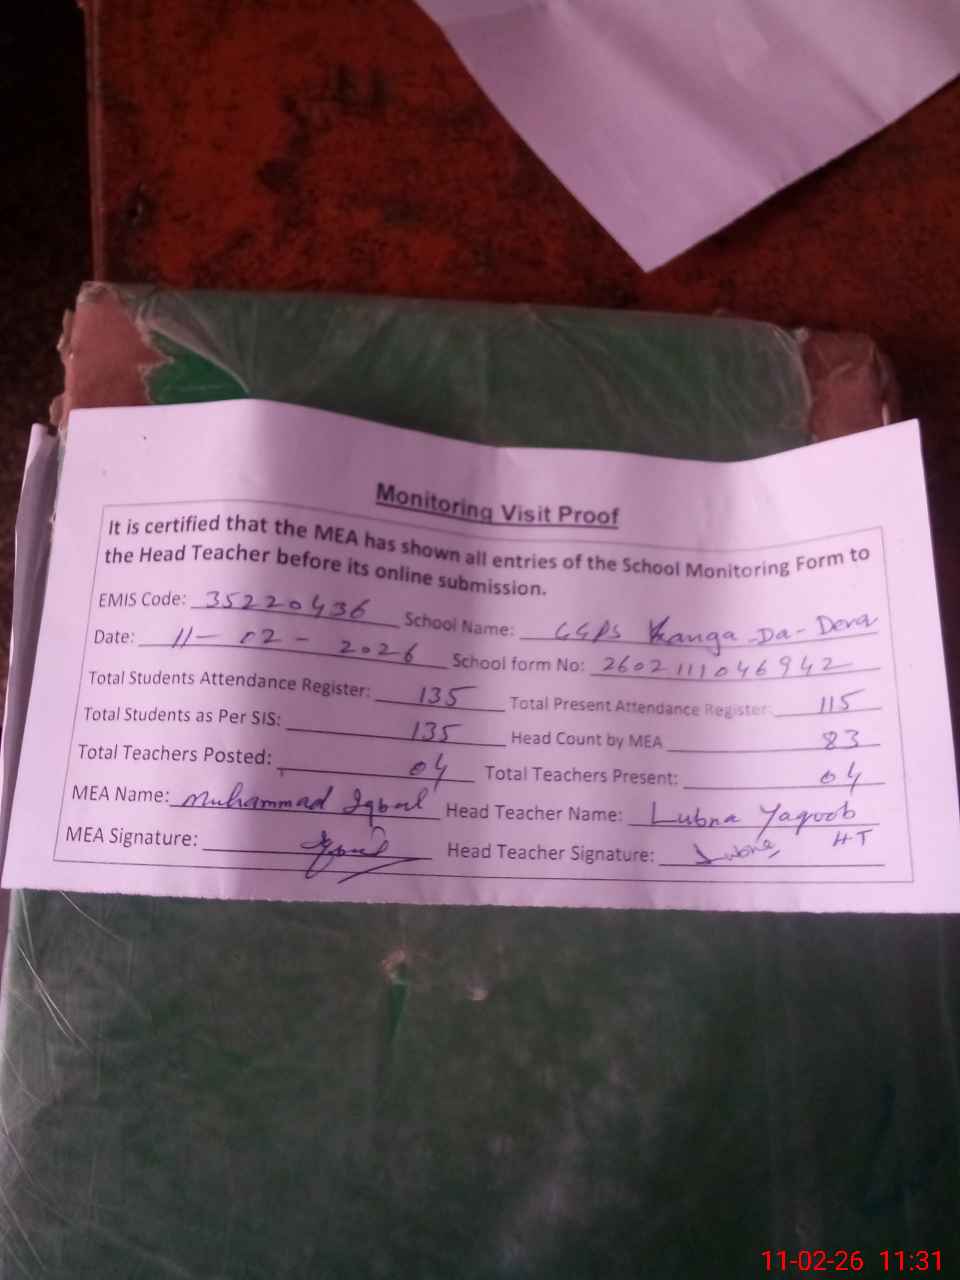 Monitoring Visit Proof
It is certified that the MEA has shown all entries of the School Monitoring Form to
the Head Teacher before its online submission.
EMIS Code: 35220436 School Name: GGPS Kanga-Da-Dera
Date: 11-02-2026 School form No: 2602111046942
Total Students Attendance Register: 135 Total Present Attendance Register: 115
Total Students as Per SIS: 135 Head Count by MEA 83
Total Teachers Posted: 04 Total Teachers Present: 04
MEA Name: Muhammad Iqbal Head Teacher Name: Lubna Yaqoob
HT
MEA Signature: Head Teacher Signature: Lubna
11-02-26 11:31